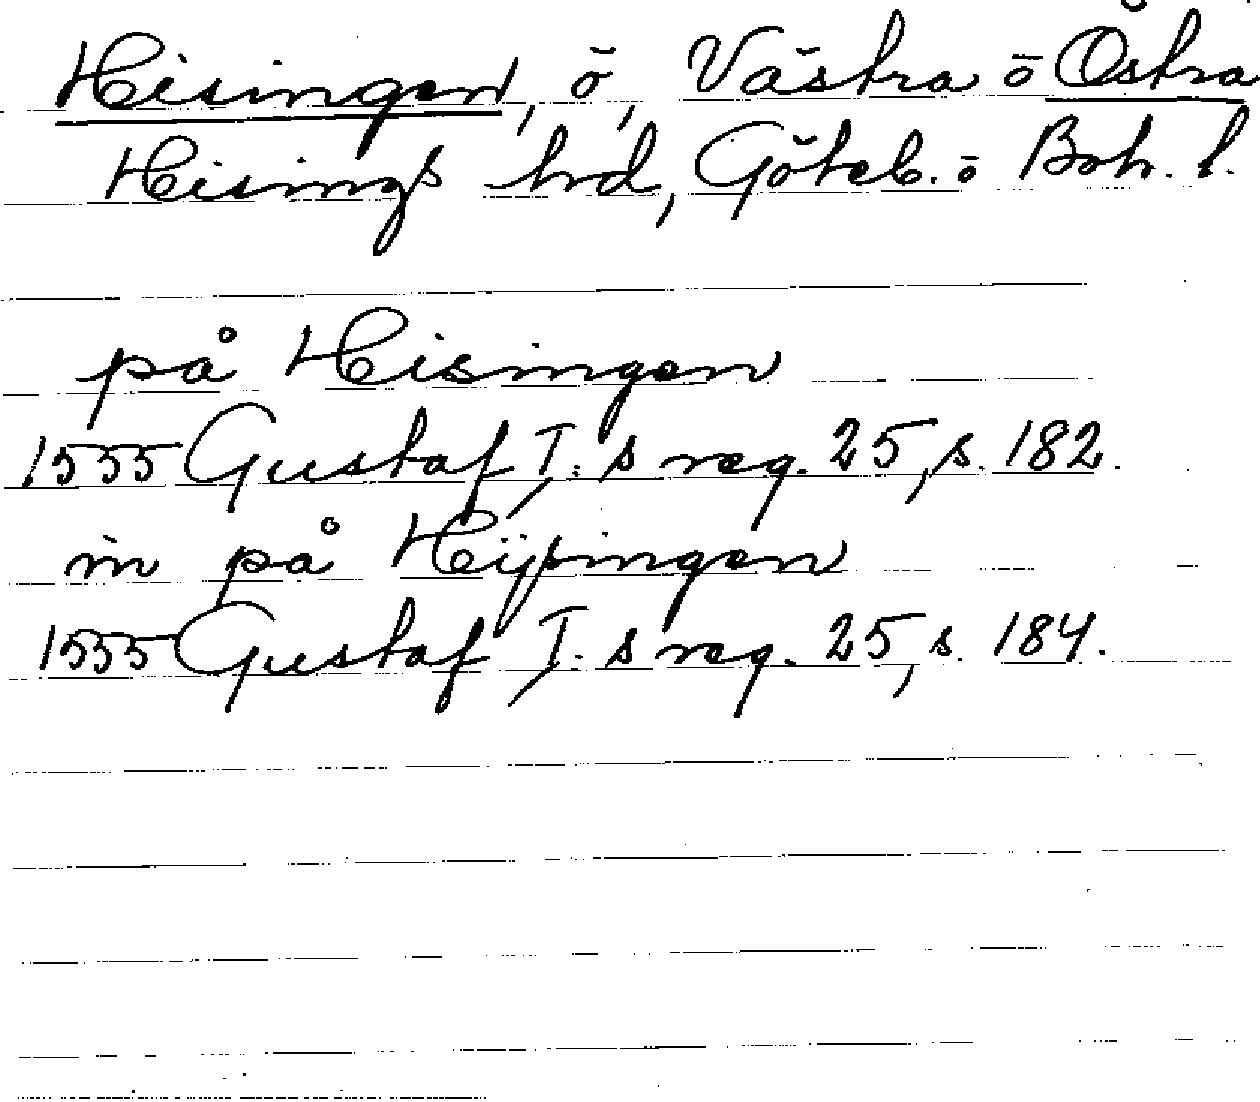 Hisingen, ö, Västra o Östra
Hisings hrd, Göteb. o Boh. l.
på Hisingen
1555 Gustaf I:s reg. 25, s. 182.
in på Hijsingen
1555 Gustaf I:s reg. 25, s. 184.